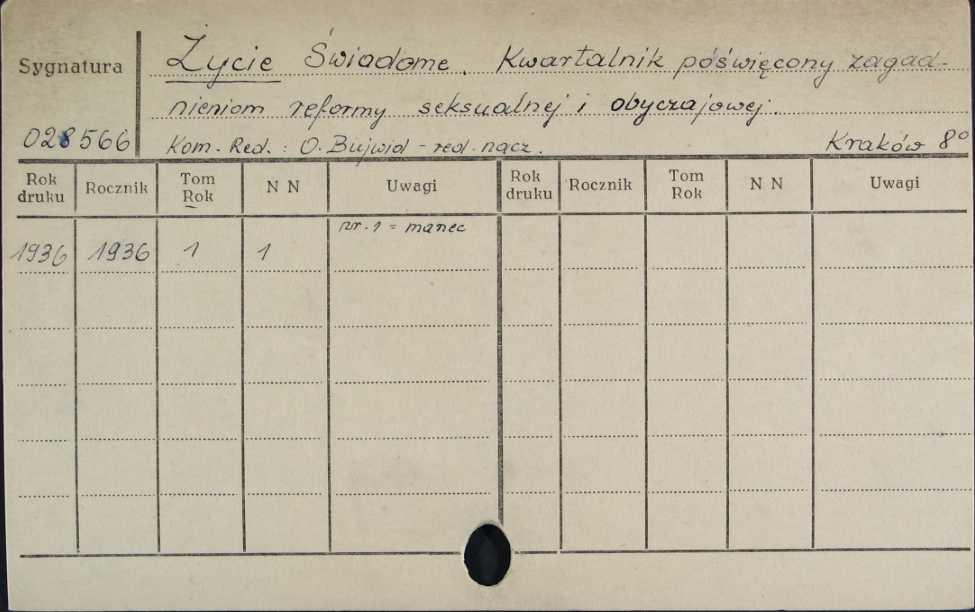 Sygnatura
Życie Świadome. Kwartalnik poświęcony zagad-
nieniom reformy seksualnej i obyczajowej.
028566
Kom. Red.: O. Bujwid - red. nacz.
Kraków 8°
Rok druku Rocznik Tom Rok N N Uwagi Rok druku Rocznik Tom Rok N N Uwagi
nr. 1 = marzec
1936 1936 1 1